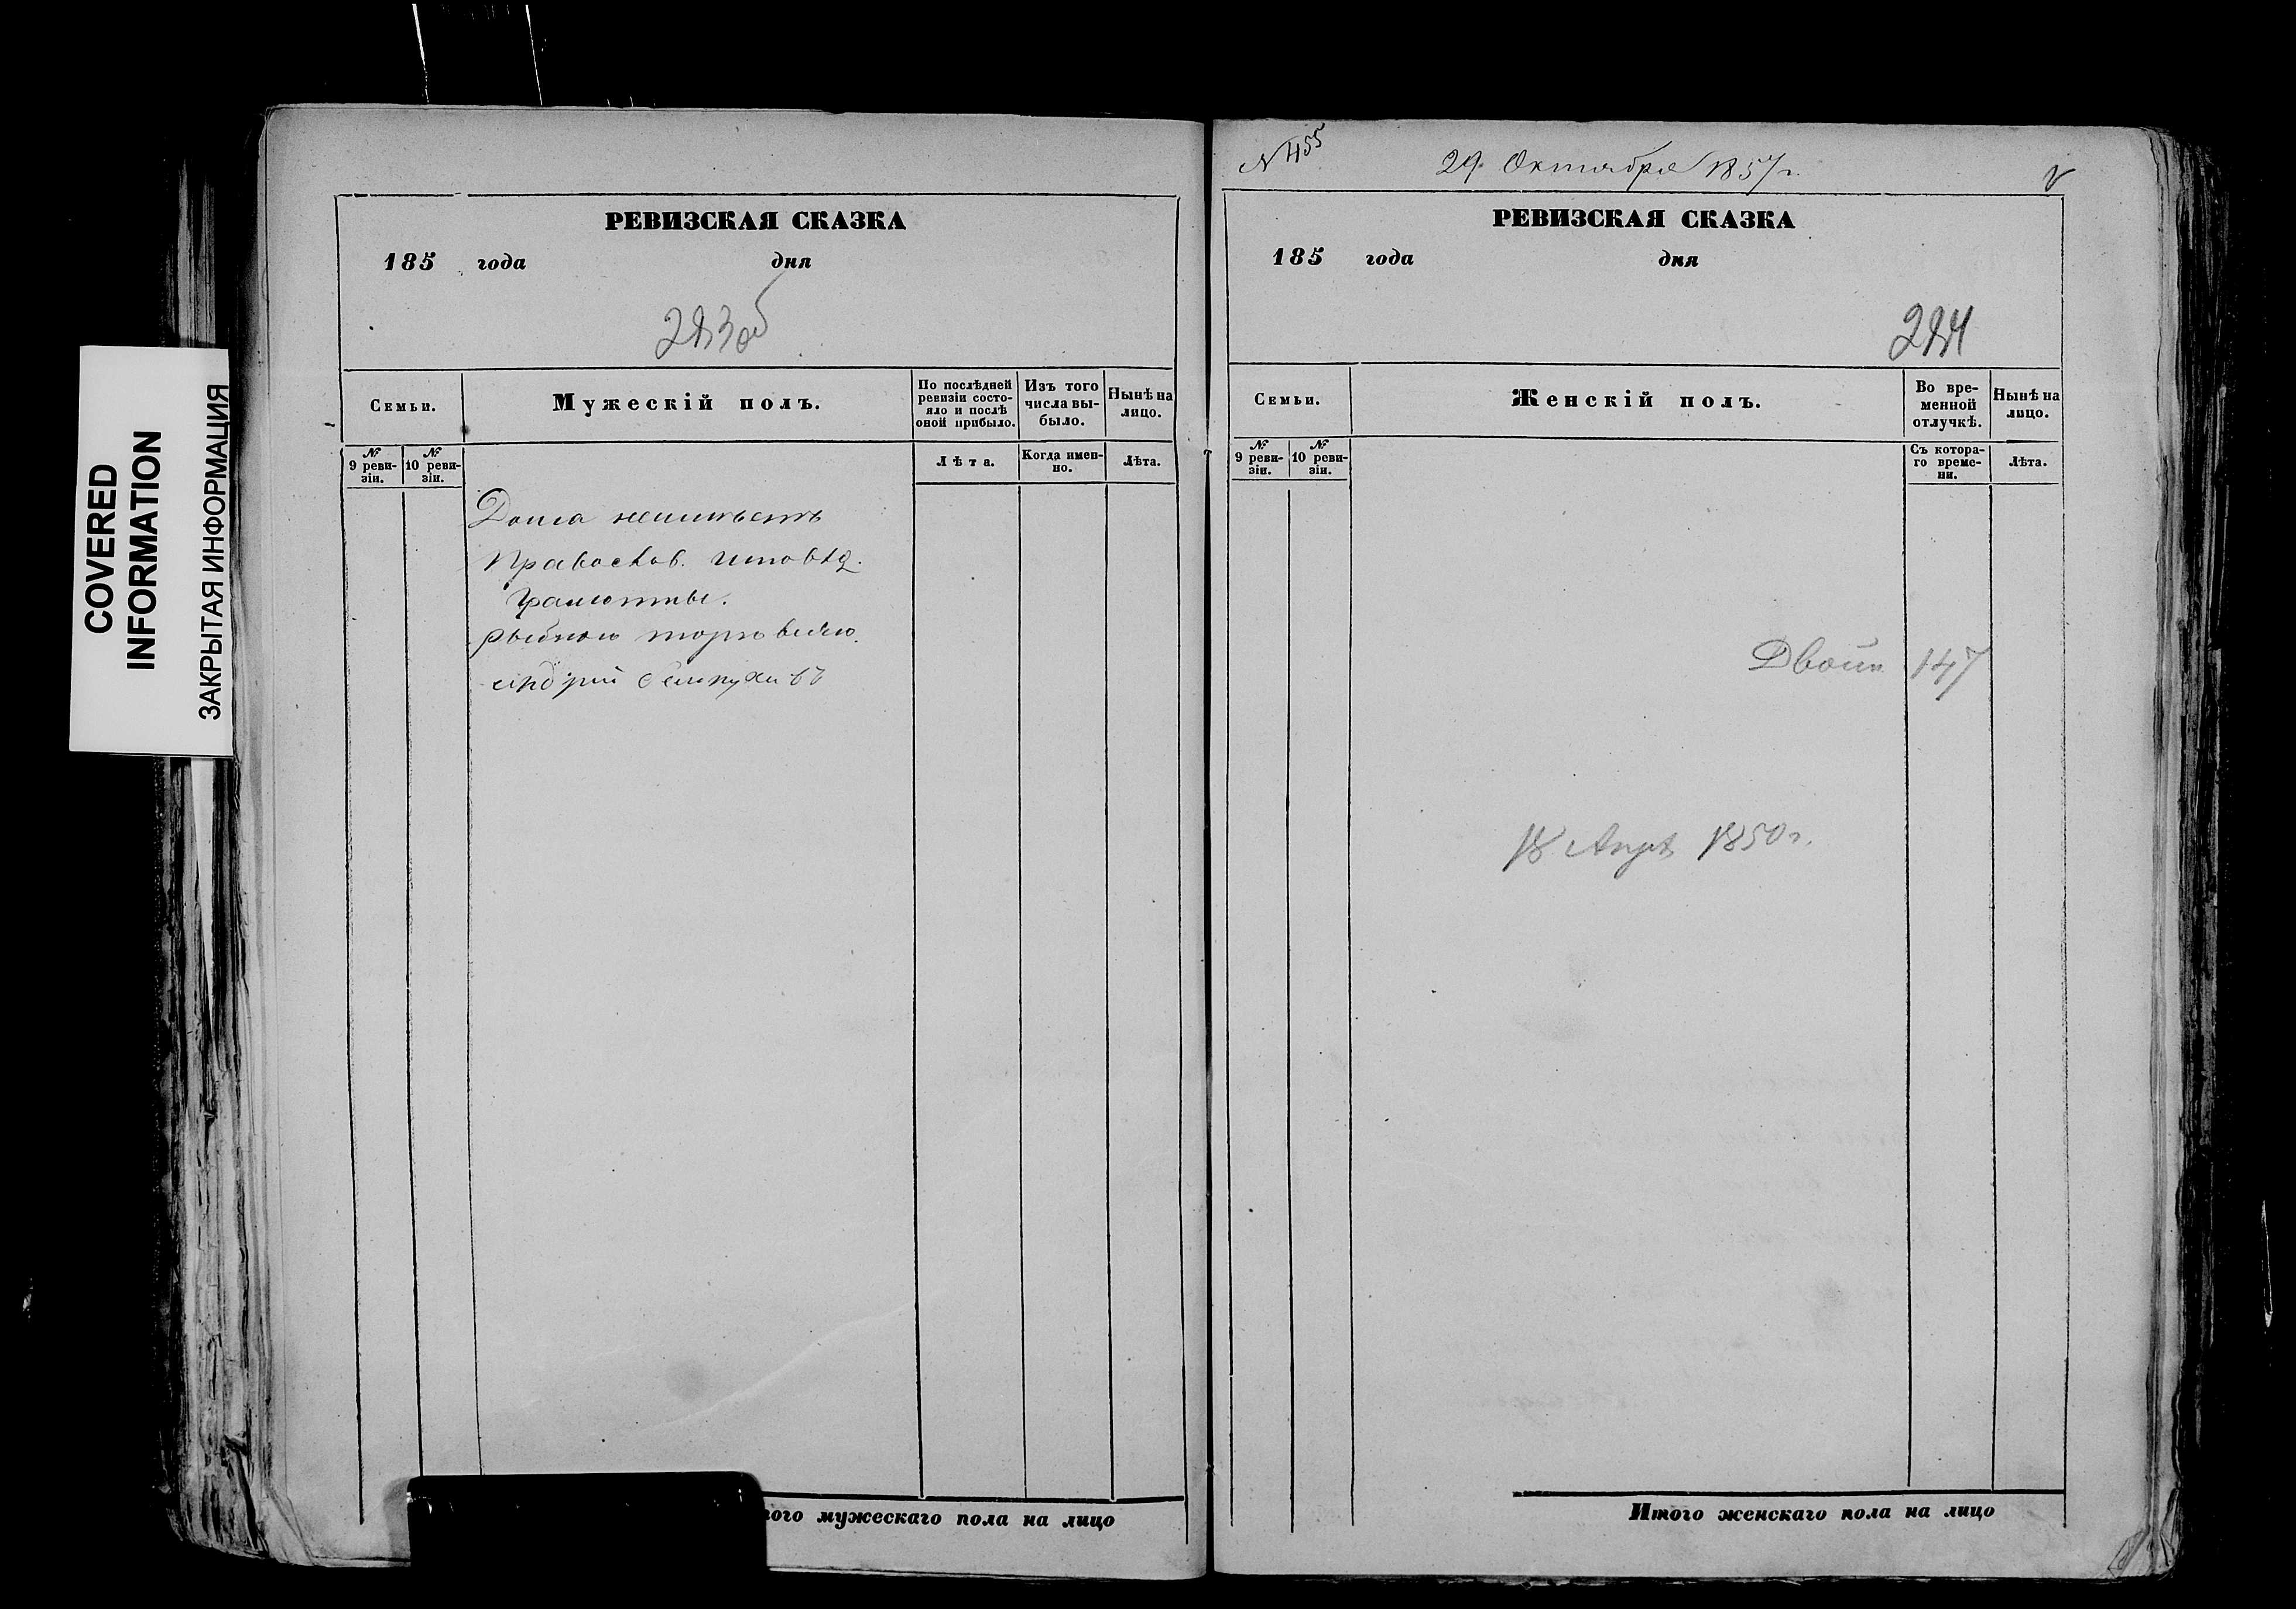 COVERED
INFORMATION
ЗАКРЫТАЯ ИНФОРМАЦИЯ
РЕВИЗСКАЯ СКАЗКА
185 года дня
223об
Семьи.
Мужескій полъ.
По послѣдней ревизіи состояло и послѣ оной прибыло.
Изъ того числа выбыло.
Нынѣ на лицо.
№ 9 ревизіи.
№ 10 ревизіи.
Лѣта.
Когда именно.
Лѣта.
Дома неимѣетъ
Православ. исповѣд.
Грамотны.
рыбною торговлею.
того мужескаго пола на лицо
N 455
29 Октября 1857 г.
V
РЕВИЗСКАЯ СКАЗКА
185 года дня
224
Семьи.
Женскій полъ.
Во временной отлучкѣ.
Нынѣ на лицо.
№ 9 ревизіи.
№ 10 ревизіи.
Съ котораго времени.
Лѣта.
Двойн 147
18 Апрѣ 1850 г.
Итого женскаго пола на лицо